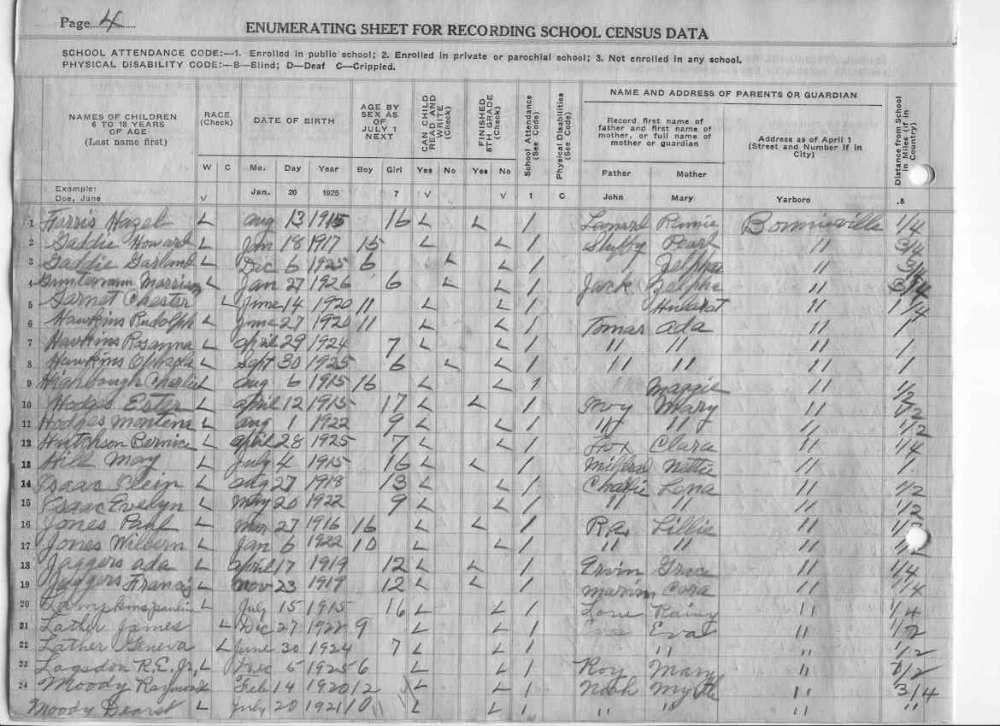 Page 4
ENUMERATING SHEET FOR RECORDING SCHOOL CENSUS DATA
SCHOOL ATTENDANCE CODE:—1. Enrolled in public school; 2. Enrolled in private or parochial school; 3. Not enrolled in any school.
PHYSICAL DISABILITY CODE:—B—Blind; D—Deaf C—Crippled.
NAMES OF CHILDREN 6 TO 18 YEARS OF AGE (Last name first) RACE (Check) DATE OF BIRTH AGE BY SEX AS OF JULY 1 NEXT CAN CHILD READ AND WRITE (Check) FINISHED 8TH GRADE (Check) School Attendance (See Code) Physical Disabilities (See Code) NAME AND ADDRESS OF PARENTS OR GUARDIAN Distance from School in Miles (if in Country)
Record first name of father and first name of mother, or full name of mother or guardian Address as of April 1 (Street and Number if in City)
W C Mo. Day Year Boy Girl Yes No Yes No Father Mother
Example: Doe, Jane V Jan. 20 1925 7 V V 1 C John Mary Yarboro .8
1 Farris Hazel L Aug 13 1915 16 L L 1 Lenard Bonnieville 1/4
2 Gaddie Howard L Jan 18 1917 15 L L 1 Shelby Pearl " 3/4
3 Gaddie Garland L Dec 6 1925 6 L L 1 " 3/4
4 L Jan 27 1926 6 L L 1 Jack Zelpha " 3/4
5 Garnet Chester L June 14 1920 11 L L 1 " 1/4
6 Hawkins Rudolph L June 27 1920 11 L L 1 Tomas Ada " 1
7 Hawkins Rosanna L April 29 1924 7 L L 1 " " " 1
8 Hawkins L Sept 30 1925 6 L L 1 " " " 1
9 Highbaugh Charlie L Aug 6 1915 16 L L 1 Maggie " 1/2
10 Hodges Ester L April 12 1915 17 L L 1 Ivy Mary " 1/2
11 Hodges L Aug 1 1922 9 L L 1 " " " 1/2
12 Hutchson Bernice L April 28 1925 7 L L 1 Clara " 1/4
13 Hill May L July 4 1915 16 L L 1 Nettie " 1
14 Isaac L Aug 27 1918 13 L L 1 Charlie Lena " 1/2
15 Isaac Evelyn L May 20 1922 9 L L 1 " " " 1/2
16 Jones Paul L Mar 27 1916 16 L L 1 Lillie " 1/2
17 Jones Wilbern L Jan 6 1922 10 L L 1 " " "
18 Jaggers Ada L April 17 1919 12 L L 1 Ervin " 1/4
19 Jaggers Francis L Nov 23 1919 12 L L 1 Cora " 1/4
20 L July 15 1915 16 L L 1 " 1/4
21 Lather James L Dec 27 1922 9 L L 1 Eva " 1/2
22 Lather Geneva L June 30 1924 7 L L 1 " " 1/2
23 Logsdon R.E. Jr, L Dec 5 1925 6 L L 1 Roy Mary " 1/2
24 Moody Raymond L Feb 14 1920 12 L L 1 Noah Myrtle " 3/4
Moody L July 20 1921 10 L L 1 " " " "